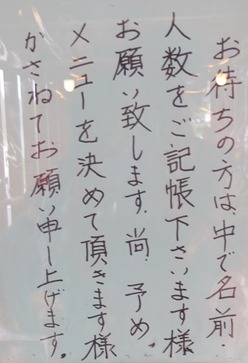 お待ちの方は、中で名前・
人数をご記帳下さいます様
お願い致します。尚、予め
メニューを決めて頂きます様
かさねてお願い申し上げます。